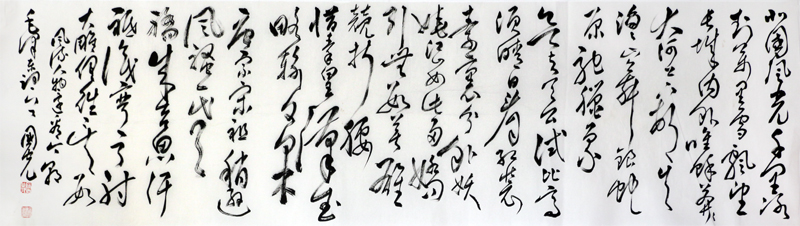 北国风光千里冰
封万里雪飘望
长城内外唯余莽莽
大河上下顿失滔
滔山舞银蛇
原驰腊象
欲与天公试比高
须晴日看红装
素裹分外妖
娆江山如此多娇
引无数英雄
竞折腰
惜秦皇汉武
略输文采
唐宗宋祖稍逊
风骚一代天
骄成吉思汗
只识弯弓射
大雕俱往矣数
风流人物还看今朝
毛泽东词